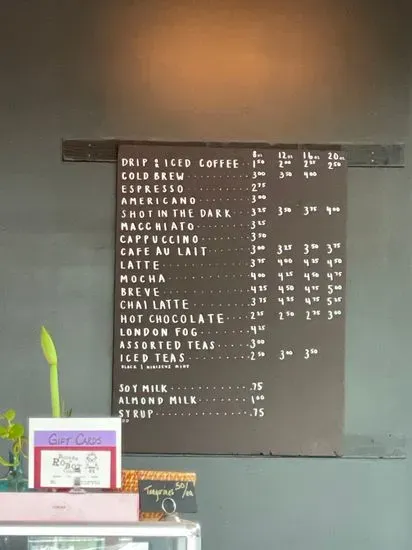 8oz 12oz 16oz 20oz
DRIP & ICED COFFEE 1.50 2.00 2.25 2.50
COLD BREW 3.00 3.50 4.00
ESPRESSO 2.75
AMERICANO 3.00
SHOT IN THE DARK 3.25 3.50 3.75 4.00
MACCHIATO 3.25
CAPPUCCINO 3.50
CAFE AU LAIT 3.00 3.25 3.50 3.75
LATTE 3.75 4.00 4.25 4.50
MOCHA 4.00 4.25 4.50 4.75
BREVE 4.25 4.50 4.75 5.00
CHAI LATTE 3.75 4.25 4.75 5.25
HOT CHOCOLATE 2.25 2.50 2.75 3.00
LONDON FOG 4.25
ASSORTED TEAS 3.00
ICED TEAS 2.50 3.00 3.50
BLACK | HIBISCUS MINT
SOY MILK .75
ALMOND MILK 1.00
SYRUP .75
GIFT CARDS
ROBOT
Tangerines 50/ea